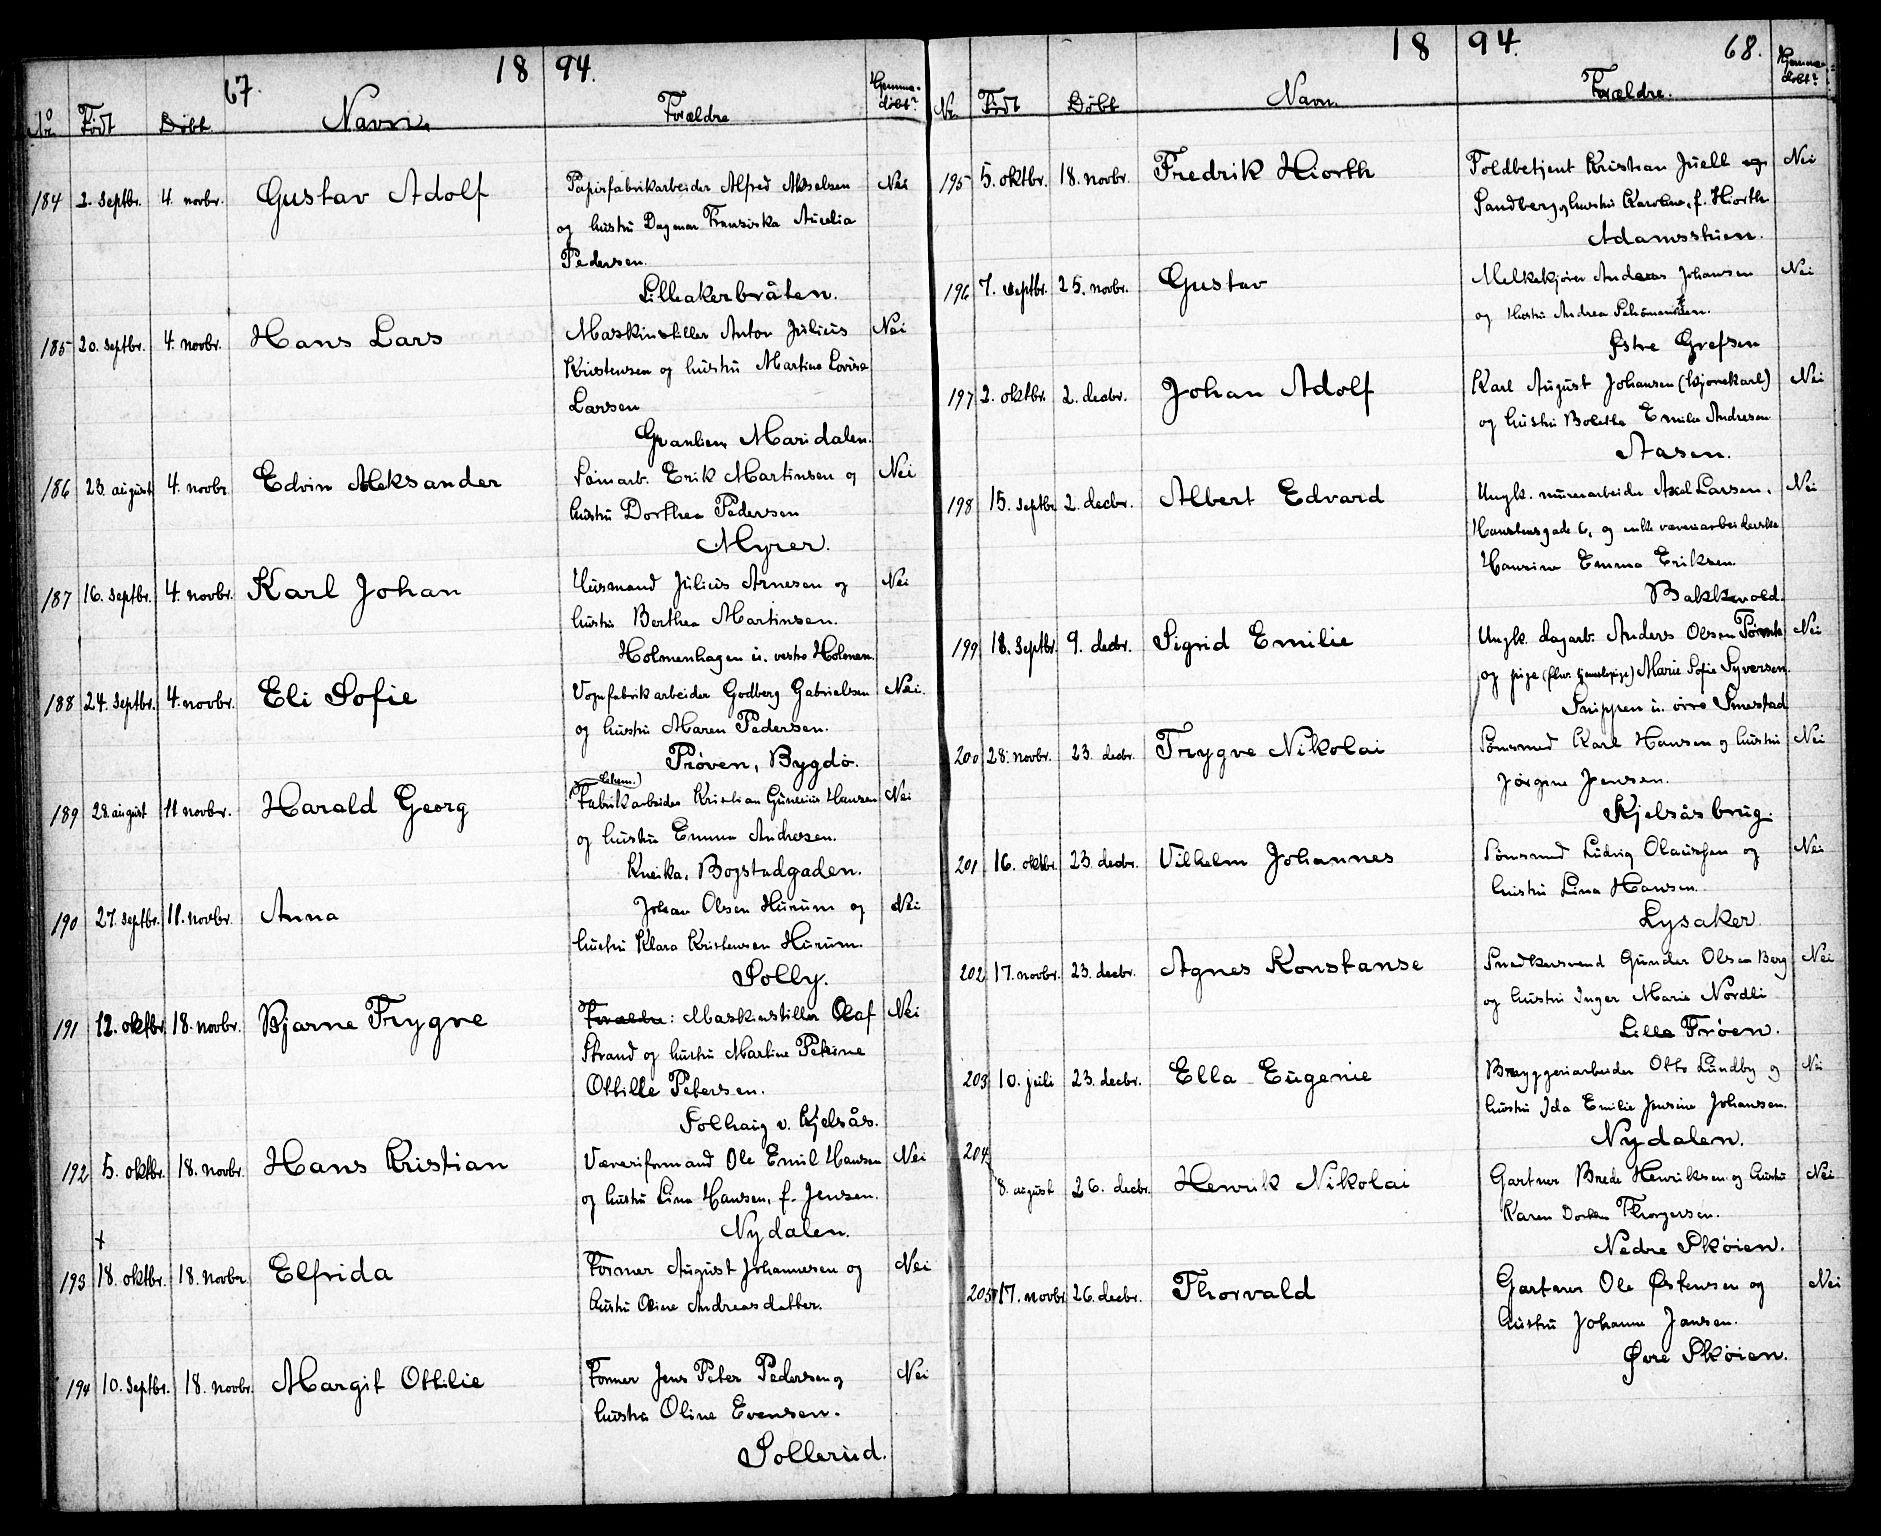 67. 18 94.
No Født Døbt Navn. Forældre Hjemme-
døbt?
184 2. septbr. 4. novbr. Gustav Adolf Papirfabrikarbeider Alfred Akselsen Nei
og hustru Dagmar Fransiska Aurelia
Pedersen.
Lilleakerbråten.
185 20. septbr. 4. novbr. Hans Lars Maskinstiller Anton Julius Nei
Kristensen og hustru Martine Lovise
Larsen
Granlien, Maridalen.
186 23. august 4. novbr. Edvin Aleksander Erik Martinsen og Nei
hustru Dorthea Pedersen
Myrer.
187 16. septbr. 4. novbr. Karl Johan Husmand Julius Arnesen og Nei
hustru Berthea Martinsen.
Holmenhagen u. vestre Holmen.
188 24. septbr. 4. novbr. Eli Sofie Vognfabrikarbeider Godberg Gabrielsen Nei.
og hustru Maren Pedersen.
Prøven, Bygdø.
189 28. august 11 novbr. Harald Georg Fabrikarbeider Kristian Gunerius Hansen Nei
og hustru Emma Andresen.
Kneika, Bogstadgaden.
190 27. septbr. 11. novbr. Anna Johan Olsen Hurum og Nei
hustru Klara Kristensen Hurum.
Solly.
191 12. oktbr. 18. novbr. Bjarne Trygve Forældre: Maskinstiller Olaf Nei
Strand og hustru Martine Petrine
Ottille Petersen.
Solhaug v. Kjelsås.
192 5. oktbr. 18. novbr. Hans Kristian Væveriformand Ole Emil Hansen Nei
og hustru Lina Hansen, f. Jensen.
Nydalen.
193 18. oktbr. 18. novbr. Elfrida Former August Johannesen og Nei
hustru Oline Andreasdatter.
194 10. septbr. 18. novbr. Margit Ottilie Former Jens Peter Pedersen og Nei
hustru Oline Evensen.
Sollerud.
18 94. 68.
Nr. Født Døbt Navn. Forældre. Hjemme-
døbt?
195 5. oktbr. 18. novbr. Fredrik Hiorth Toldbetjent Kristian Juell og Nei
Sandberg og hustru Karoline, f. Hiorth
Adamsstuen.
196 7. septbr. 25. novbr. Gustav Melkekjører Anders Johansen Nei
og Hustru Andrea
Østre Grefsen
197 2. oktbr. 2. decbr. Johan Adolf Karl August Johansen (kjørekarl) Nei
og hustru Bolette Emilie Andresen
Aasen.
198 15. septbr 2. decbr. Albert Edvard Ungk. murerarbeider Axel Larsen, Nei
Haustensgade 6, og enke væveriarbeiderske
Hansine Emma Eriksen.
Bakkevold.
199 18. septbr. 9. decbr. Sigrid Emilie Ungk. dagarb. Anders Olsen Nei
og pige (fhv. tjenestepige) Marie Sofie Syversen.
Snippen u. øvre Smestad
200 28. novbr. 23. decbr. Trygve Nikolai Karl Hansen og hustru Nei
Jørgine Jensen.
Kjelsåsbrug.
201 16. oktbr. 23. decbr. Vilhelm Johannes Ludvig Olaussen og Nei
hustru Lina Hansen.
Lysaker.
202 17. novbr. 23. decbr. Agnes Konstanse Snedkersvend Gunder Olsen Berg Nei
og hustru Inger Marie Nordli
Lille Frøen.
203 10. juli 23. decbr. Ella Eugenie Bryggeriarbeider Otto Lundby og Nei
hustru Ida Emilie Jensine Johansen.
Nydalen.
204
8. august 26. decbr. Henrik Nikolai Gartner Brede Henriksen og hustru Nei
Karen Dorthea Thorgersen.
Nedre Skøien.
205 17. novbr 26. decbr. Thorvald Gartner Ole Østensen og Nei
hustru Johanne Jansen.
Øvre Skøien.